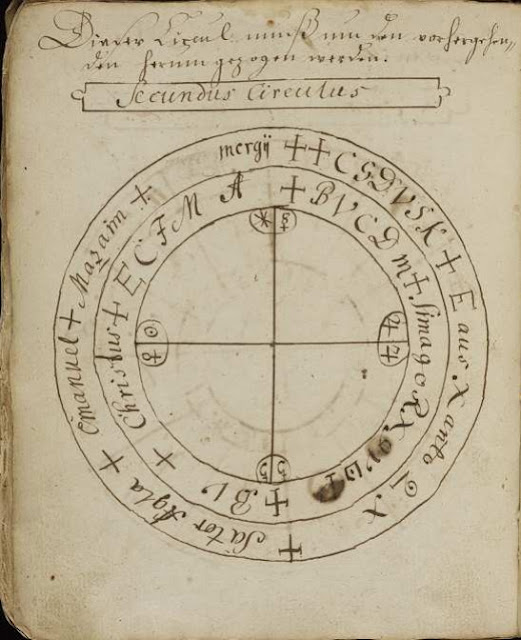 Dieser Circul muß um den vorhergehen-
den herum gezogen werden.
Secundus Circulus
mergij ++ C G D V S K + E aus X anto Q X
+ Sator Agla + emanuel + Mazaim +
A + B V C D m + Simago R X
+ B V + Christus + E C F M